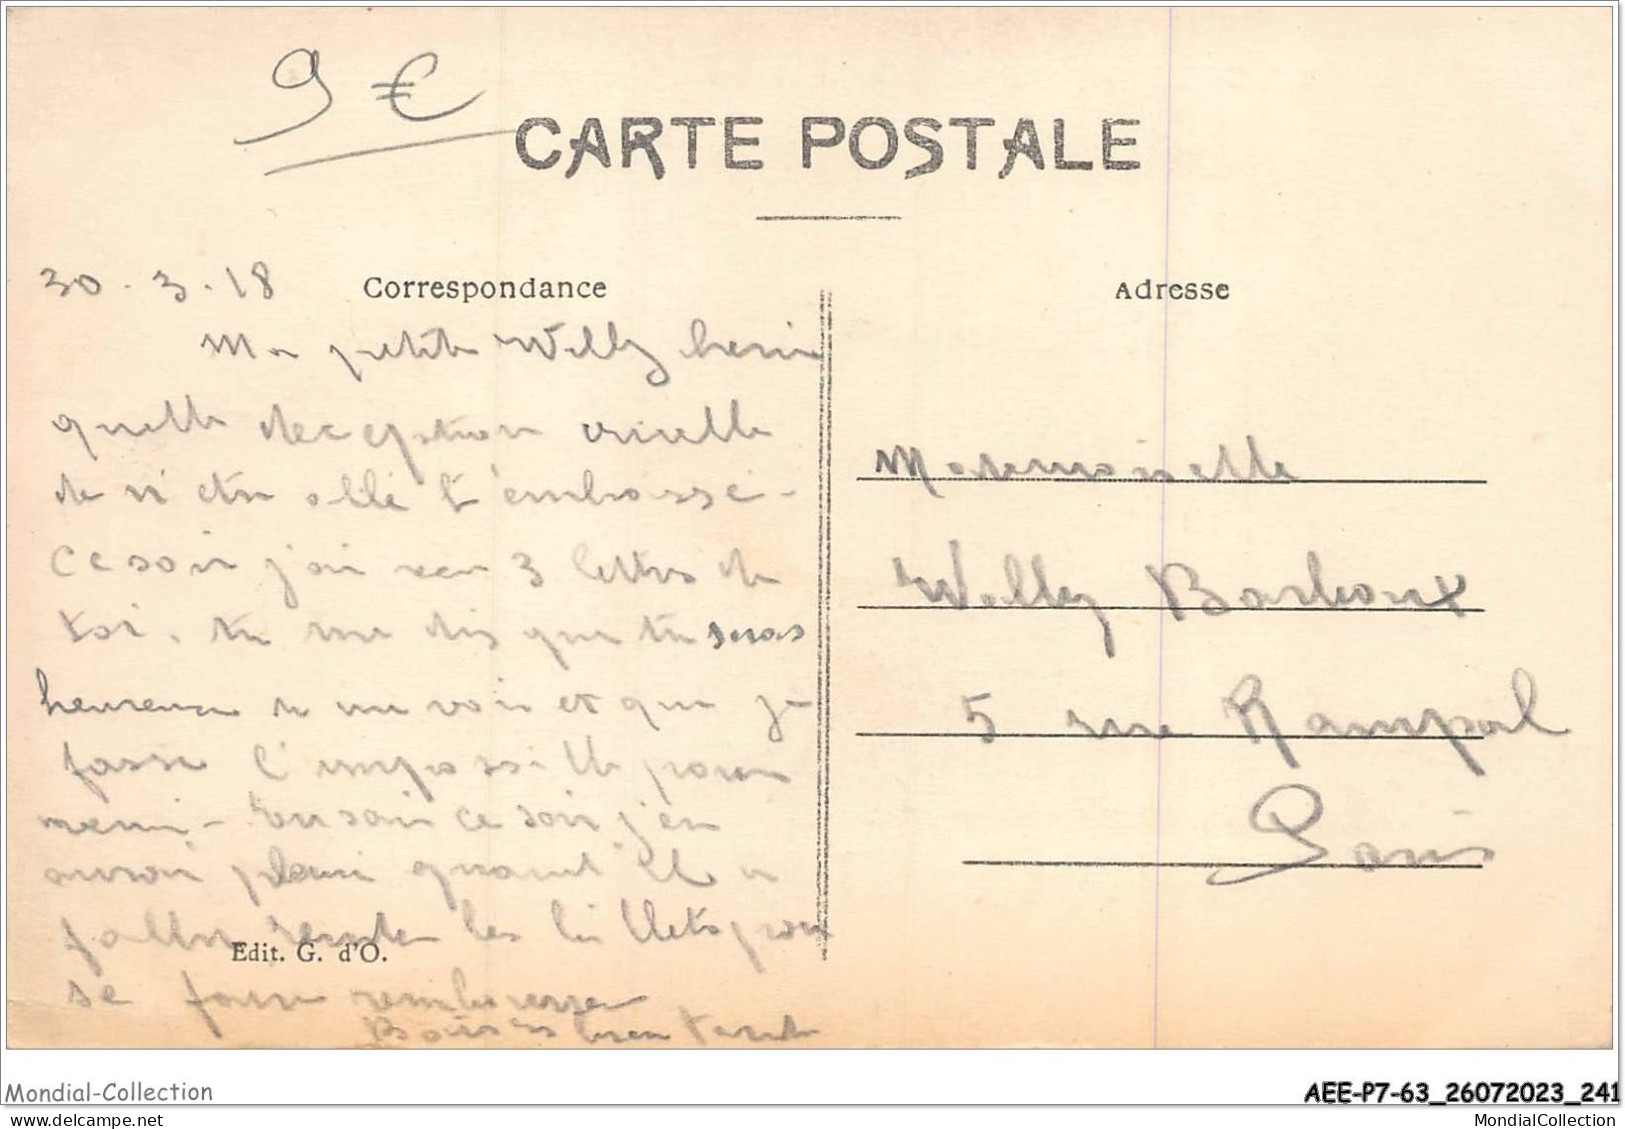 9 €
CARTE POSTALE
30.3.18
Correspondance
Adresse
Ma petite Willy
quelle deception cruelle
de n'etre allé t'embrasser -
ce soir j'ai reçu 3 lettres de
toi. tu me dis que tu seras
heureuse de me voir et que je
fasse l'impossible pour
venir - ce soir j'en
aurai quand il a
fallu rendre les billets pour
se faire rembourser
Baisers bien tendres
Edit. G. d'O.
Mademoiselle
Willy
5 rue Rampal
Paris
Mondial-Collection
AEE-P7-63_26072023_241
MondialCollection
delcampe.net